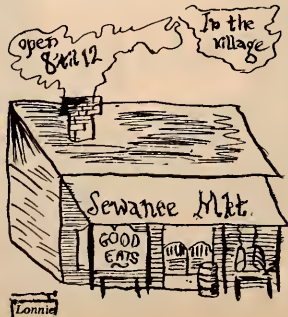 open
8 til 12
In the
Village
Sewanee Mkt.
GOOD
EATS
Lonnie